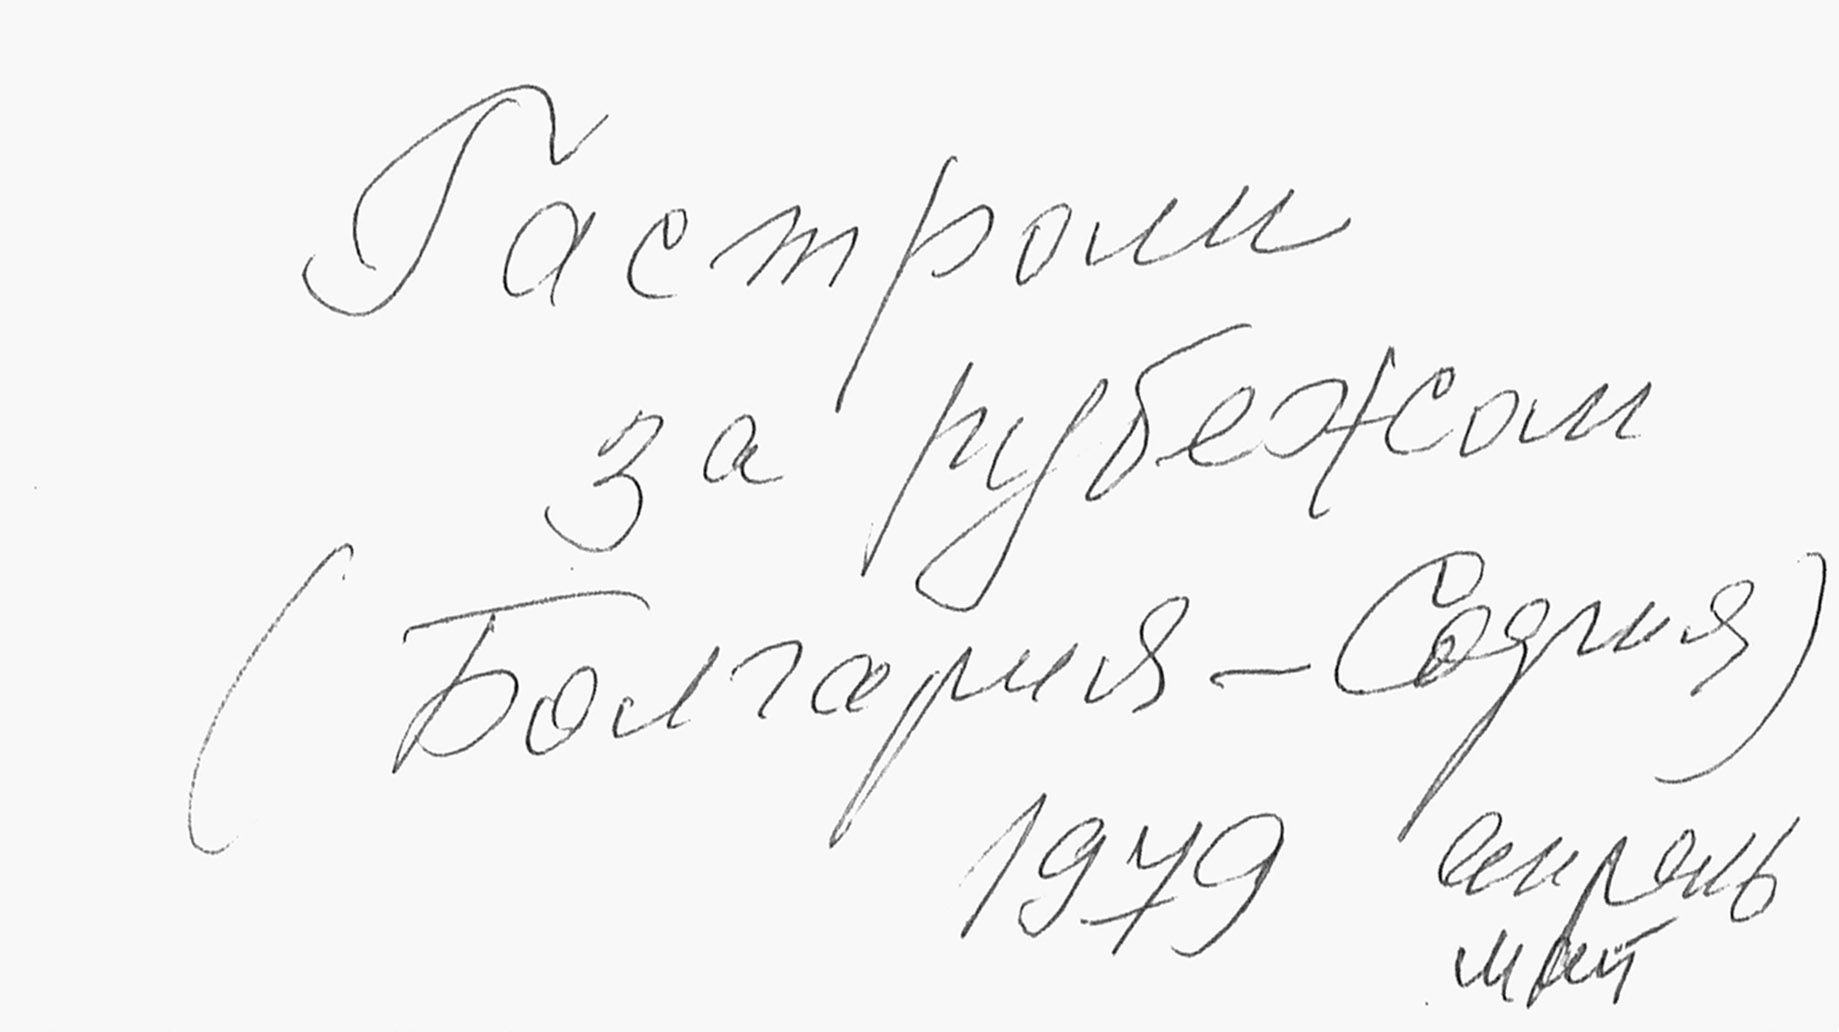 Гастроли
за рубежом
(Болгария – София)
1979 апрель
май